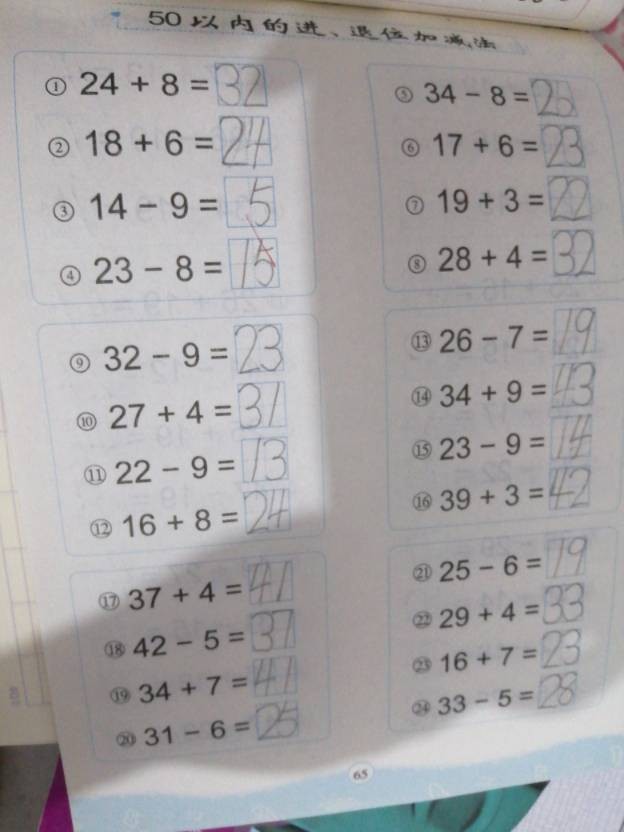 50以内的进、退位加减法
① 24 + 8 = 32
② 18 + 6 = 24
③ 14 − 9 = 5
④ 23 − 8 = 15
⑤ 34 − 8 =
⑥ 17 + 6 = 23
⑦ 19 + 3 = 22
⑧ 28 + 4 = 32
⑨ 32 − 9 = 23
⑩ 27 + 4 = 31
⑪ 22 − 9 = 13
⑫ 16 + 8 = 24
⑬ 26 − 7 = 19
⑭ 34 + 9 = 43
⑮ 23 − 9 = 14
⑯ 39 + 3 = 42
⑰ 37 + 4 = 41
⑱ 42 − 5 = 37
⑲ 34 + 7 = 41
⑳ 31 − 6 = 25
㉑ 25 − 6 = 19
㉒ 29 + 4 = 33
㉓ 16 + 7 = 23
㉔ 33 − 5 = 28
65